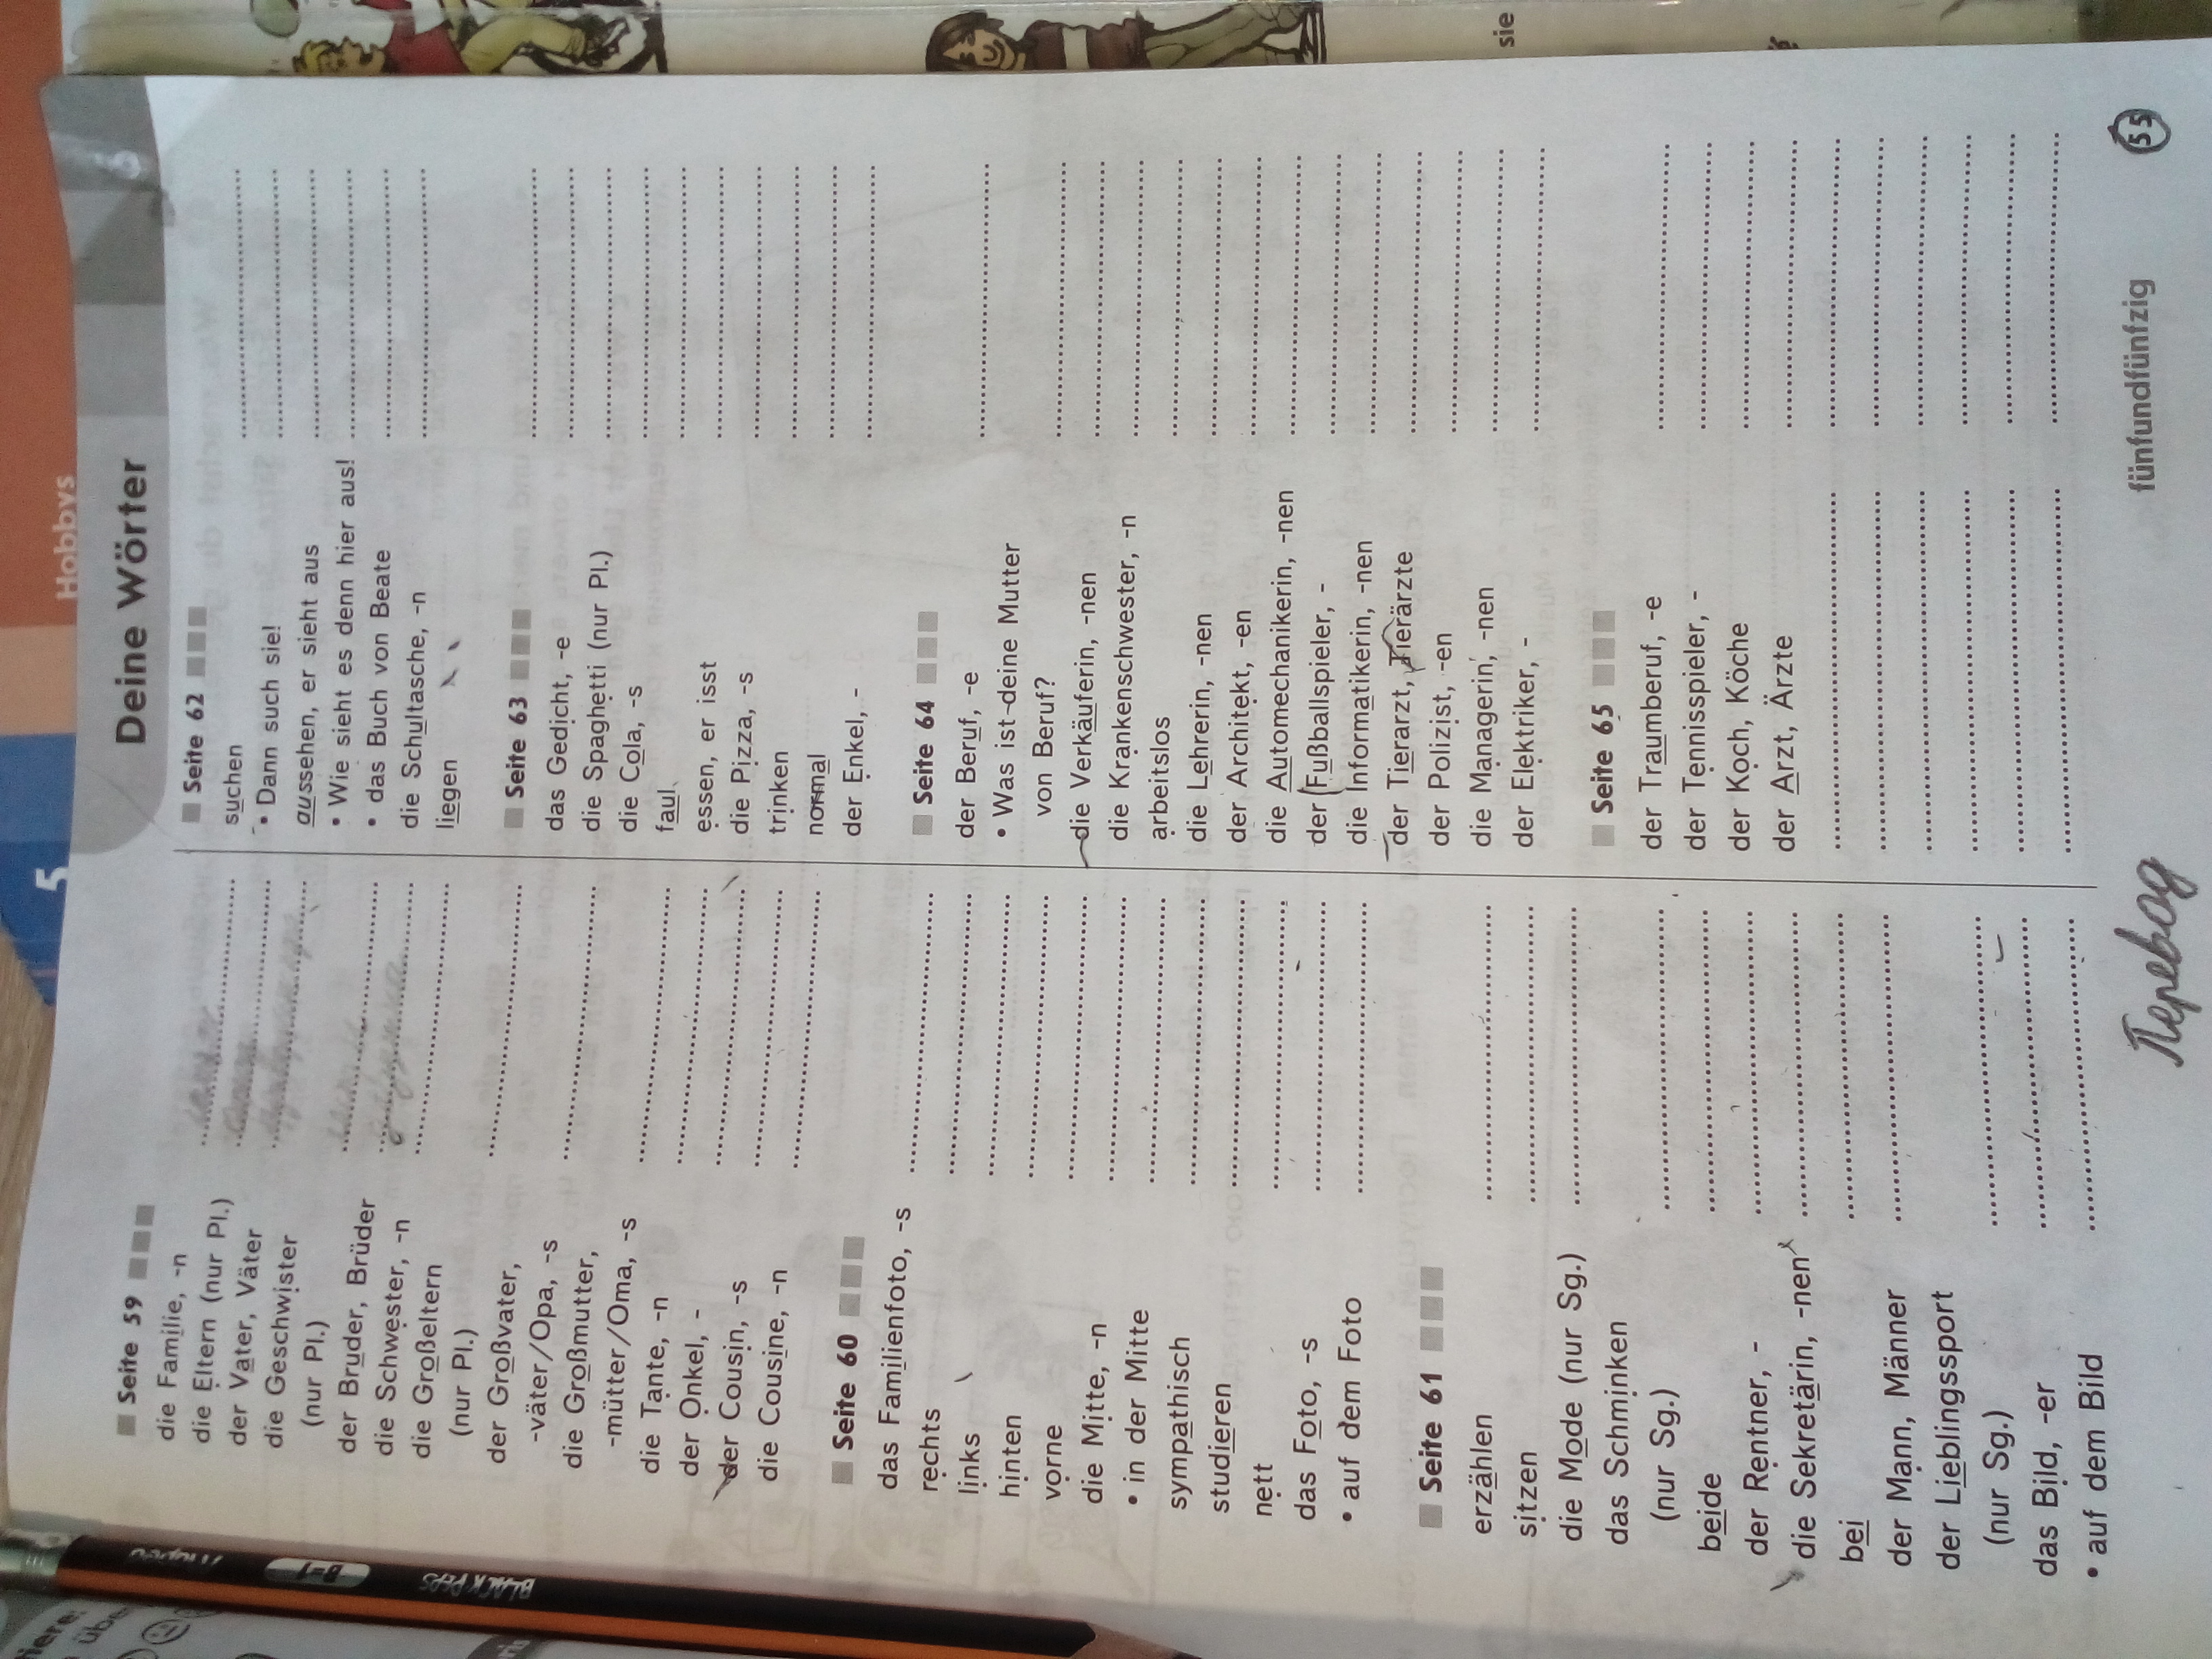 Hobbys
5
Deine Wörter
Seite 59
die Familie, -n
die Eltern (nur Pl.)
der Vater, Väter
die Geschwister
(nur Pl.)
der Bruder, Brüder
die Schwester, -n
die Großeltern
(nur Pl.)
der Großvater,
-väter/Opa, -s
die Großmutter,
-mütter/Oma, -s
die Tante, -n
der Onkel, -
der Cousin, -s
die Cousine, -n
Seite 60
das Familienfoto, -s
rechts
links
hinten
vorne
die Mitte, -n
• in der Mitte
sympathisch
studieren
nett
das Foto, -s
• auf dem Foto
Seite 61
erzählen
sitzen
die Mode (nur Sg.)
das Schminken
(nur Sg.)
beide
der Rentner, -
die Sekretärin, -nen
bei
der Mann, Männer
der Lieblingssport
(nur Sg.)
das Bild, -er
• auf dem Bild
Seite 62
suchen
• Dann such sie!
aussehen, er sieht aus
• Wie sieht es denn hier aus!
• das Buch von Beate
die Schultasche, -n
liegen
Seite 63
das Gedicht, -e
die Spaghetti (nur Pl.)
die Cola, -s
faul
essen, er isst
die Pizza, -s
trinken
normal
der Enkel, -
Seite 64
der Beruf, -e
• Was ist deine Mutter
von Beruf?
die Verkäuferin, -nen
die Krankenschwester, -n
arbeitslos
die Lehrerin, -nen
der Architekt, -en
die Automechanikerin, -nen
der Fußballspieler, -
die Informatikerin, -nen
der Tierarzt, Tierärzte
der Polizist, -en
die Managerin, -nen
der Elektriker, -
Seite 65
der Traumberuf, -e
der Tennisspieler, -
der Koch, Köche
der Arzt, Ärzte
Перевод
fünfundfünfzig
55
sie
BLACK PEPS